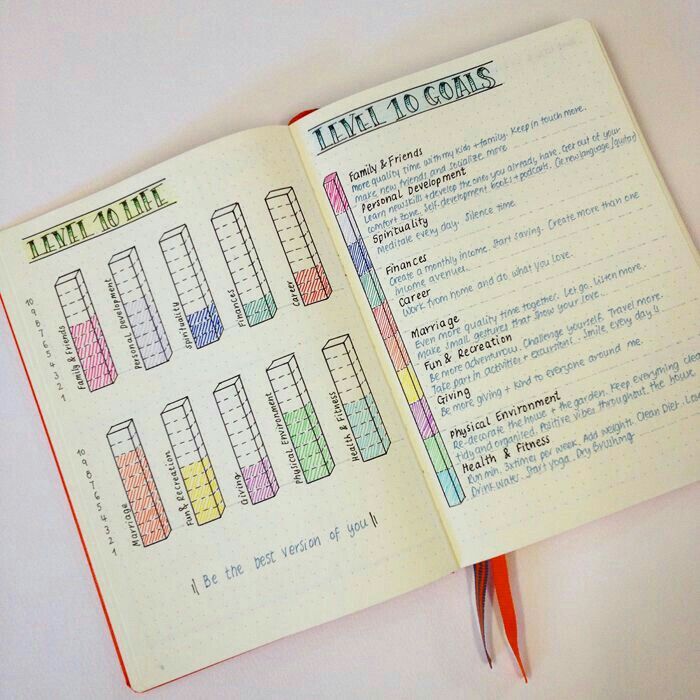 LEVEL 10 LIFE
10
9
8
7
6
5
4
3
2
1
Family & Friends
Personal Development
Spirituality
Finances
Career
10
9
8
7
6
5
4
3
2
1
Marriage
Fun & Recreation
Giving
Physical Environment
Health & Fitness
Be the best version of you
LEVEL 10 GOALS
Family & Friends
More quality time with my kids + family. Keep in touch more.
Make new friends and socialize more
Personal Development
Learn new skills + develop the ones you already have. Get out of your
comfort zone. Self-development books + podcasts. (Ie new language/guitar)
Spirituality
Meditate every day. Silence time.
Finances
Create a monthly income. Start saving. Create more than one
income avenues.
Career
Work from home and do what you love.
Marriage
Even more quality time together. Let go. Listen more.
Make small gestures that show your love.
Fun & Recreation
Be more adventurous. Challenge yourself. Travel more.
Take part in activities + excursions. Smile every day!!
Giving
Be more giving + kind to everyone around me.
Physical Environment
Re-decorate the house + the garden. Keep everything clean
tidy and organized. Positive vibes throughout the house.
Health & Fitness
Run min. 3x times per week. Add weights. Clean Diet.
Drink water. Start yoga. Dry Brushing